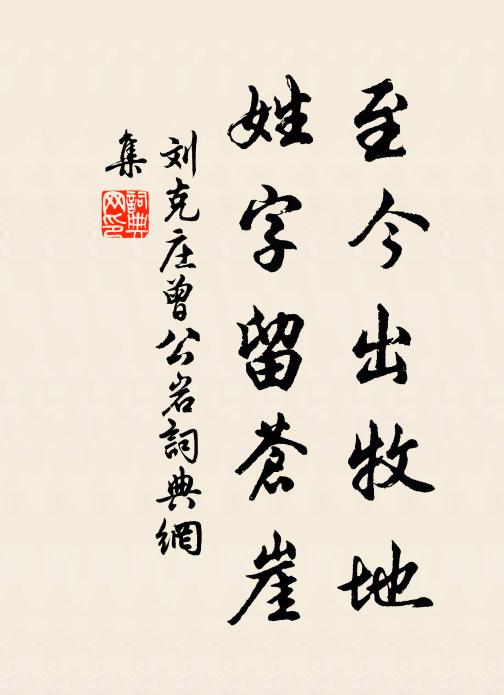 至今出牧地
姓字留蒼崖
刘克庄曾公岩詞典網
集
詞典网印